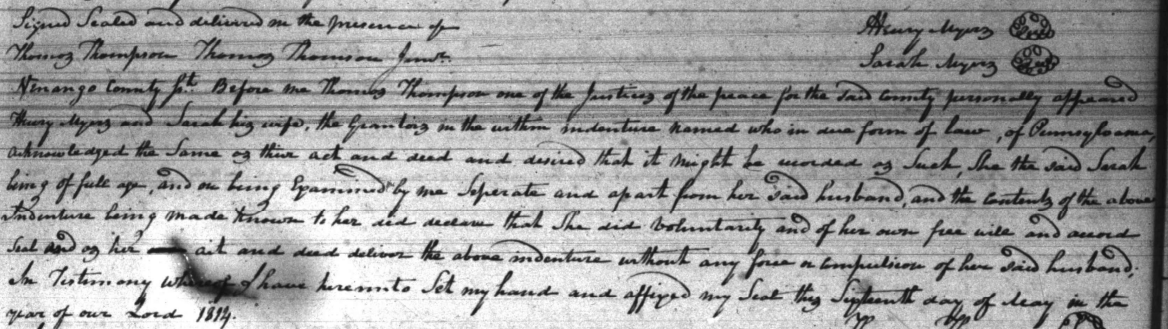 Signed Sealed and delivered in the presence of Henry Myers Seal
Thomas Thompson Thomas Thomson Junr. Sarah Myers Seal
Venango County Ss. Before me Thomas Thompson one of the Justices of the peace for the said county personally appeared
Henry Myers and Sarah his wife, the grantors in the within indenture named who in due form of law, of Pennsylvania,
acknowledged the Same as their act and deed and desired that it might be recorded as Such, She the said Sarah
being of full age, and on being Examined by me Seperate and apart from her said husband, and the contents of the above
Indenture being made known to her did declare that She did Voluntarily and of her own free will and accord
Seal and as her act and deed deliver the above indenture without any force or compulsion of her said husband,
In Testimony whereof I have hereunto Set my hand and affixed my Seal this Sixteenth day of May in the
year of our Lord 1814.